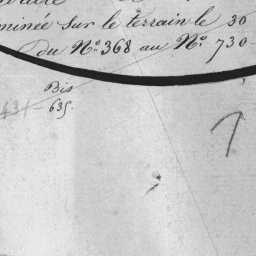 minée sur le terrain le 30
du N.º 368 au N.º 730
Bis
635.